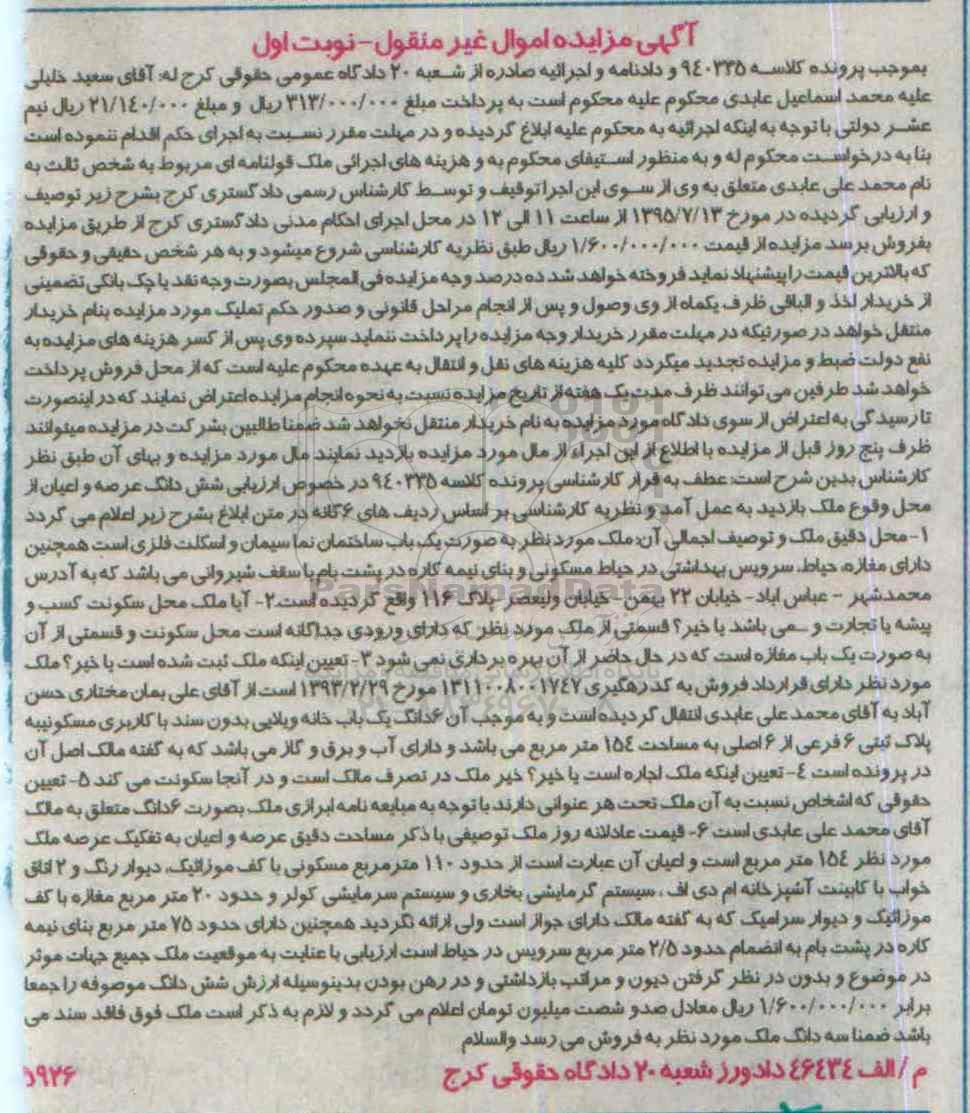 آگهی مزایده اموال غیر منقول - نوبت اول
بموجب پرونده کلاسه ۹۴۰۳۳۵ و دادنامه و اجرائیه صادره از شعبه ۲۰ دادگاه عمومی حقوقی کرج له: آقای سعید خلیلی
علیه محمد اسماعیل عابدی محکوم علیه محکوم است به پرداخت مبلغ ۳۱۳/۰۰۰/۰۰۰ ریال و مبلغ ۲۱/۱۴۰/۰۰۰ ریال نیم
عشر دولتی با توجه به اینکه اجرائیه به محکوم علیه ابلاغ گردیده و در مهلت مقرر نسبت به اجرای حکم اقدام ننموده است
بنا به درخواست محکوم له و به منظور استیفای محکوم به و هزینه های اجرائی ملک قولنامه ای مربوط به شخص ثالث به
نام محمد علی عابدی متعلق به وی از سوی این اجرا توقیف و توسط کارشناس رسمی دادگستری کرج بشرح زیر توصیف
و ارزیابی گردیده در مورخ ۱۳۹۵/۷/۱۳ از ساعت ۱۱ الی ۱۲ در محل اجرای احکام مدنی دادگستری کرج از طریق مزایده
بفروش برسد مزایده از قیمت ۱/۶۰۰/۰۰۰/۰۰۰ ریال طبق نظریه کارشناسی شروع میشود و به هر شخص حقیقی و حقوقی
که بالاترین قیمت را پیشنهاد نماید فروخته خواهد شد ده درصد وجه مزایده فی المجلس بصورت وجه نقد یا چک بانکی تضمینی
از خریدار اخذ و الباقی ظرف یکماه از وی وصول و پس از انجام مراحل قانونی و صدور حکم تملیک مورد مزایده بنام خریدار
منتقل خواهد در صورتیکه در مهلت مقرر خریدار وجه مزایده را پرداخت ننماید سپرده وی پس از کسر هزینه های مزایده به
نفع دولت ضبط و مزایده تجدید میگردد کلیه هزینه های نقل و انتقال به عهده محکوم علیه است که از محل فروش پرداخت
خواهد شد طرفین می توانند ظرف مدت یک هفته از تاریخ مزایده نسبت به نحوه انجام مزایده اعتراض نمایند که در اینصورت
تا رسیدگی به اعتراض از سوی دادگاه مورد مزایده به نام خریدار منتقل نخواهد شد ضمنا طالبین بشرکت در مزایده میتوانند
ظرف پنج روز قبل از مزایده با اطلاع از این اجراء از مال مورد مزایده بازدید نمایند مال مورد مزایده و بهای آن طبق نظر
کارشناس بدین شرح است: عطف به قرار کارشناسی پرونده کلاسه ۹۴۰۳۳۵ در خصوص ارزیابی شش دانگ عرصه و اعیان از
محل وقوع ملک بازدید به عمل آمد و نظریه کارشناسی بر اساس ردیف های ۶گانه در متن ابلاغ بشرح زیر اعلام می گردد
۱- محل دقیق ملک و توصیف اجمالی آن: ملک مورد نظر به صورت یک باب ساختمان نما سیمان و اسکلت فلزی است همچنین
دارای مغازه، حیاط، سرویس بهداشتی در حیاط مسکونی و بنای نیمه کاره در پشت بام با سقف شیروانی می باشد که به آدرس
محمدشهر - عباس اباد- خیابان ۲۲ بهمن -خیابان ولیعصر- پلاک ۱۱۶ واقع گردیده است.۲- آیا ملک محل سکونت کسب و
پیشه یا تجارت و ...می باشد یا خیر؟ قسمتی از ملک مورد نظر که دارای ورودی جداگانه است محل سکونت و قسمتی از آن
به صورت یک باب مغازه است که در حال حاضر از آن بهره برداری نمی شود ۳- تعیین اینکه ملک ثبت شده است یا خیر؟ ملک
مورد نظر دارای قرارداد فروش به کد رهگیری ۱۳۱۱۰۰۸۰۰۱۷۴۷ مورخ ۱۳۹۳/۲/۲۹ است از آقای علی بمان مختاری حسن
آباد به آقای محمد علی عابدی انتقال گردیده است و به موجب آن ۶دانگ یک باب خانه ویلایی بدون سند با کاربری مسکونیبه
پلاک ثبتی ۶ فرعی از ۶ اصلی به مساحت ۱۵۴ متر مربع می باشد و دارای آب و برق و گاز می باشد که به گفته مالک اصل آن
در پرونده است ۴- تعیین اینکه ملک اجاره است یا خیر؟ خیر ملک در تصرف مالک است و در آنجا سکونت می کند ۵- تعیین
حقوقی که اشخاص نسبت به آن ملک تحت هر عنوانی دارند با توجه به مبایعه نامه ابرازی ملک بصورت ۶دانگ متعلق به مالک
آقای محمد علی عابدی است ۶- قیمت عادلانه روز ملک توصیفی با ذکر مساحت دقیق عرصه و اعیان به تفکیک عرصه ملک
مورد نظر ۱۵۴ متر مربع است و اعیان آن عبارت است از حدود ۱۱۰ مترمربع مسکونی با کف موزائیک، دیوار رنگ و ۲ اتاق
خواب با کابینت آشپزخانه ام دی اف ، سیستم گرمایشی بخاری و سیستم سرمایشی کولر و حدود ۲۰ متر مربع مغازه با کف
موزائیک و دیوار سرامیک که به گفته مالک دارای جواز است ولی ارائه نگردید همچنین دارای حدود ۷۵ متر مربع بنای نیمه
کاره در پشت بام به انضمام حدود ۲/۵ متر مربع سرویس در حیاط است ارزیابی با عنایت به موقعیت ملک جمیع جهات موثر
در موضوع و بدون در نظر گرفتن دیون و مراتب بازداشتی و در رهن بودن بدینوسیله ارزش شش دانگ موصوفه را جمعا
برابر ۱/۶۰۰/۰۰۰/۰۰۰ ریال معادل صدو شصت میلیون تومان اعلام می گردد و لازم به ذکر است ملک فوق فاقد سند می
باشد ضمنا سه دانگ ملک مورد نظر به فروش می رسد والسلام
م / الف ۴۶۴۳۴ دادورز شعبه ۲۰ دادگاه حقوقی کرج ۵۹۲۶
ParsNamadData